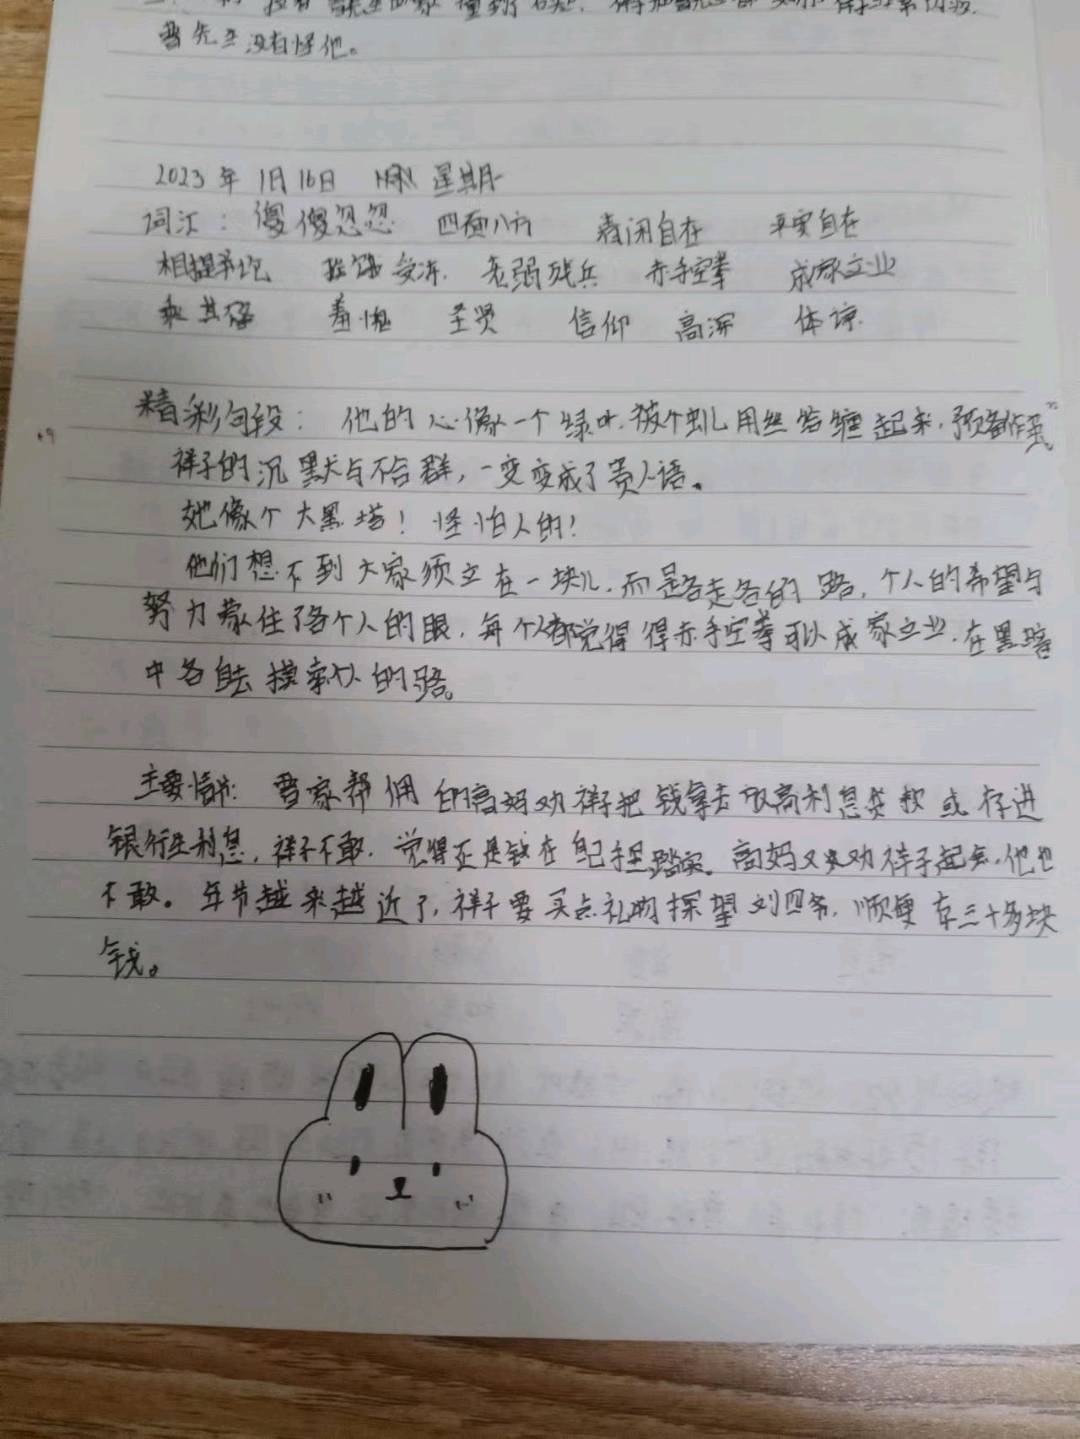 曹先生没有怪他。
2023年1月16日 星期一
词汇：傻傻忽忽 四面八方 清闲自在 平安自在
相提并论 挨饿受冻 老弱残兵 赤手空拳 成家立业
羞愧 圣贤 信仰 高深 体谅
精彩句段：他的心像一个绿叶，被个虫儿用丝给缠起来，预备作茧
祥子的沉默与不合群，一变变成了贵人语。
她像个大黑塔！怪怕人的！
他们想不到大家须立在一块儿，而是各走各的路，个人的希望与
努力蒙住了各个人的眼，每个人都觉得得赤手空拳可以成家立业，在黑暗
中各自去摸索个人的路。
主要情节：曹家帮佣的高妈劝祥子把钱拿去放高利息贷款或存进
银行生利息，祥子不敢，觉得还是钱在自己手里踏实。高妈又来劝祥子起会，他也
不敢。年节越来越近了，祥子要买点礼物探望刘四爷，顺便要三十多块
钱。